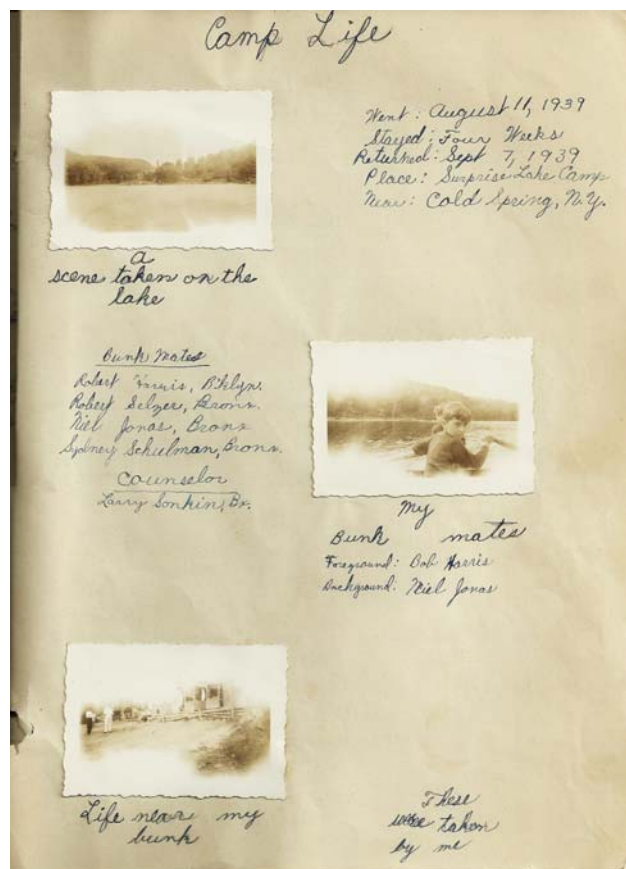 Camp Life
Went: August 11, 1939
Stayed: Four Weeks
Returned: Sept 7, 1939
Place: Surprise Lake Camp
Near: Cold Spring, N.Y.
A
scene taken on the
lake
Bunk Mates
Robert Harris, B'klyn.
Robert Selzer, Bronx.
Niel Jonas, Bronx
Sydney Schulman, Bronx.
Counselor
Larry Sonkin, Br.
My
Bunk mates
Foreground: Bob Harris
Background: Niel Jonas
Life near my
bunk
These
were taken
by me